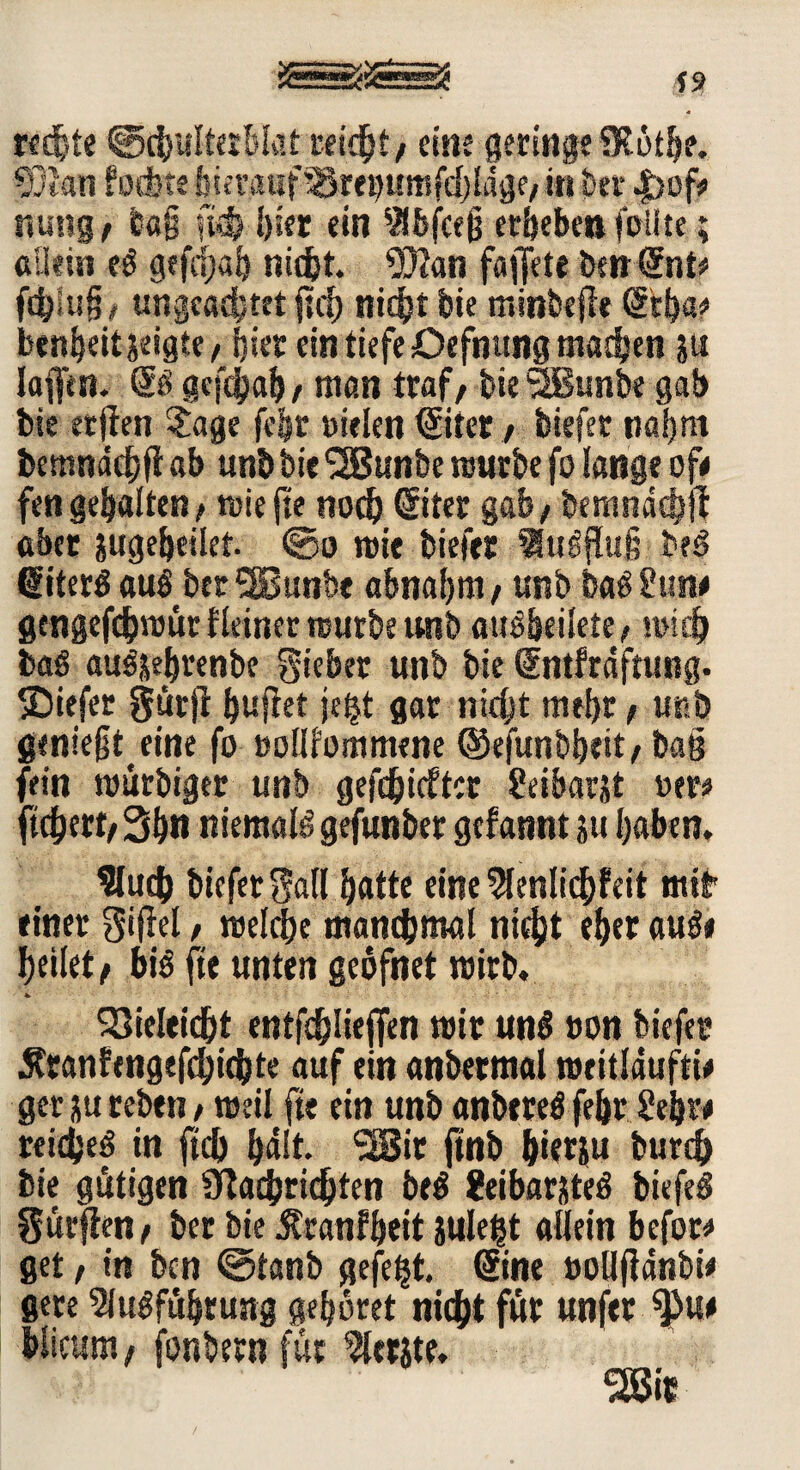 59
rechte Schulterblat reicht, eine geringe Röthe.
Man kochte hierauf Breyumschläge, in der Hof-
nung, daß sich hier ein Absceß erheben sollte;
allein es geschah nicht. Man fassete den Ent-
schluß, ungeachtet sich nicht die mindeste Erha-
benheit zeigte, hier ein tiefe Oefnung machen zu
lassen. Es geschah, man traf, die Wunde gab
die ersten Tage sehr vielen Eiter, dieser nahm
demnächst ab und die Wunde wurde so lange of-
fen gehalten, wie sie noch Eiter gab, demnächst
aber zugeheilet. So wie dieser Ausfluß des
Eiters aus der Wunde abnahm, und das Lun-
gengeschwür kleiner wurde und ausheilete, wich
das auszehrende Fieber und die Entkräftung.
Dieser Fürst hustet jetzt gar nicht mehr, und
genießt eine so vollkommene Gesundheit, daß
sein würdiger und geschickter Leibarzt ver-
sichert, Ihn niemals gesunder gekannt zu haben.
Auch dieser Fall hatte eine Aenlichkeit mit
einer Fistel, welche manchmal nicht eher aus-
heilet, bis sie unten geöfnet wird.
Vieleicht entschliessen wir uns von dieser
Krankengeschichte auf ein andermal weitläufti-
ger zu reden, weil sie ein und anderes sehr Lehr-
reiches in sich hält. Wir sind hierzu durch
die gütigen Nachrichten des Leibarztes dieses
Fürsten, der die Krankheit zuletzt allein besor-
get, in den Stand gesetzt. Eine vollständi-
gere Ausführung gehöret nicht für unser Pu-
blicum, sondern für Aerzte.
Wir